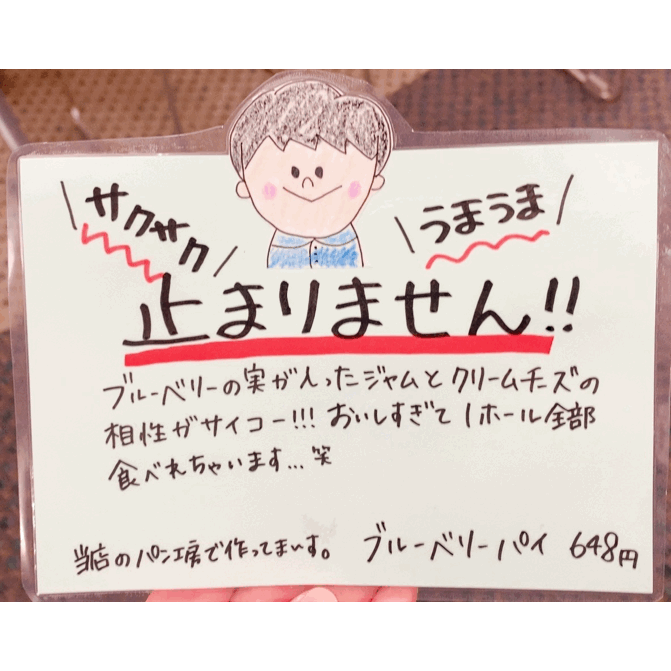 サクサク
うまうま
止まりません!!
ブルーベリーの実が入ったジャムとクリームチーズの
相性がサイコー!!! おいしすぎて1ホール全部
食べれちゃいます...笑
当店のパン工房で作ってまいす。 ブルーベリーパイ 648円